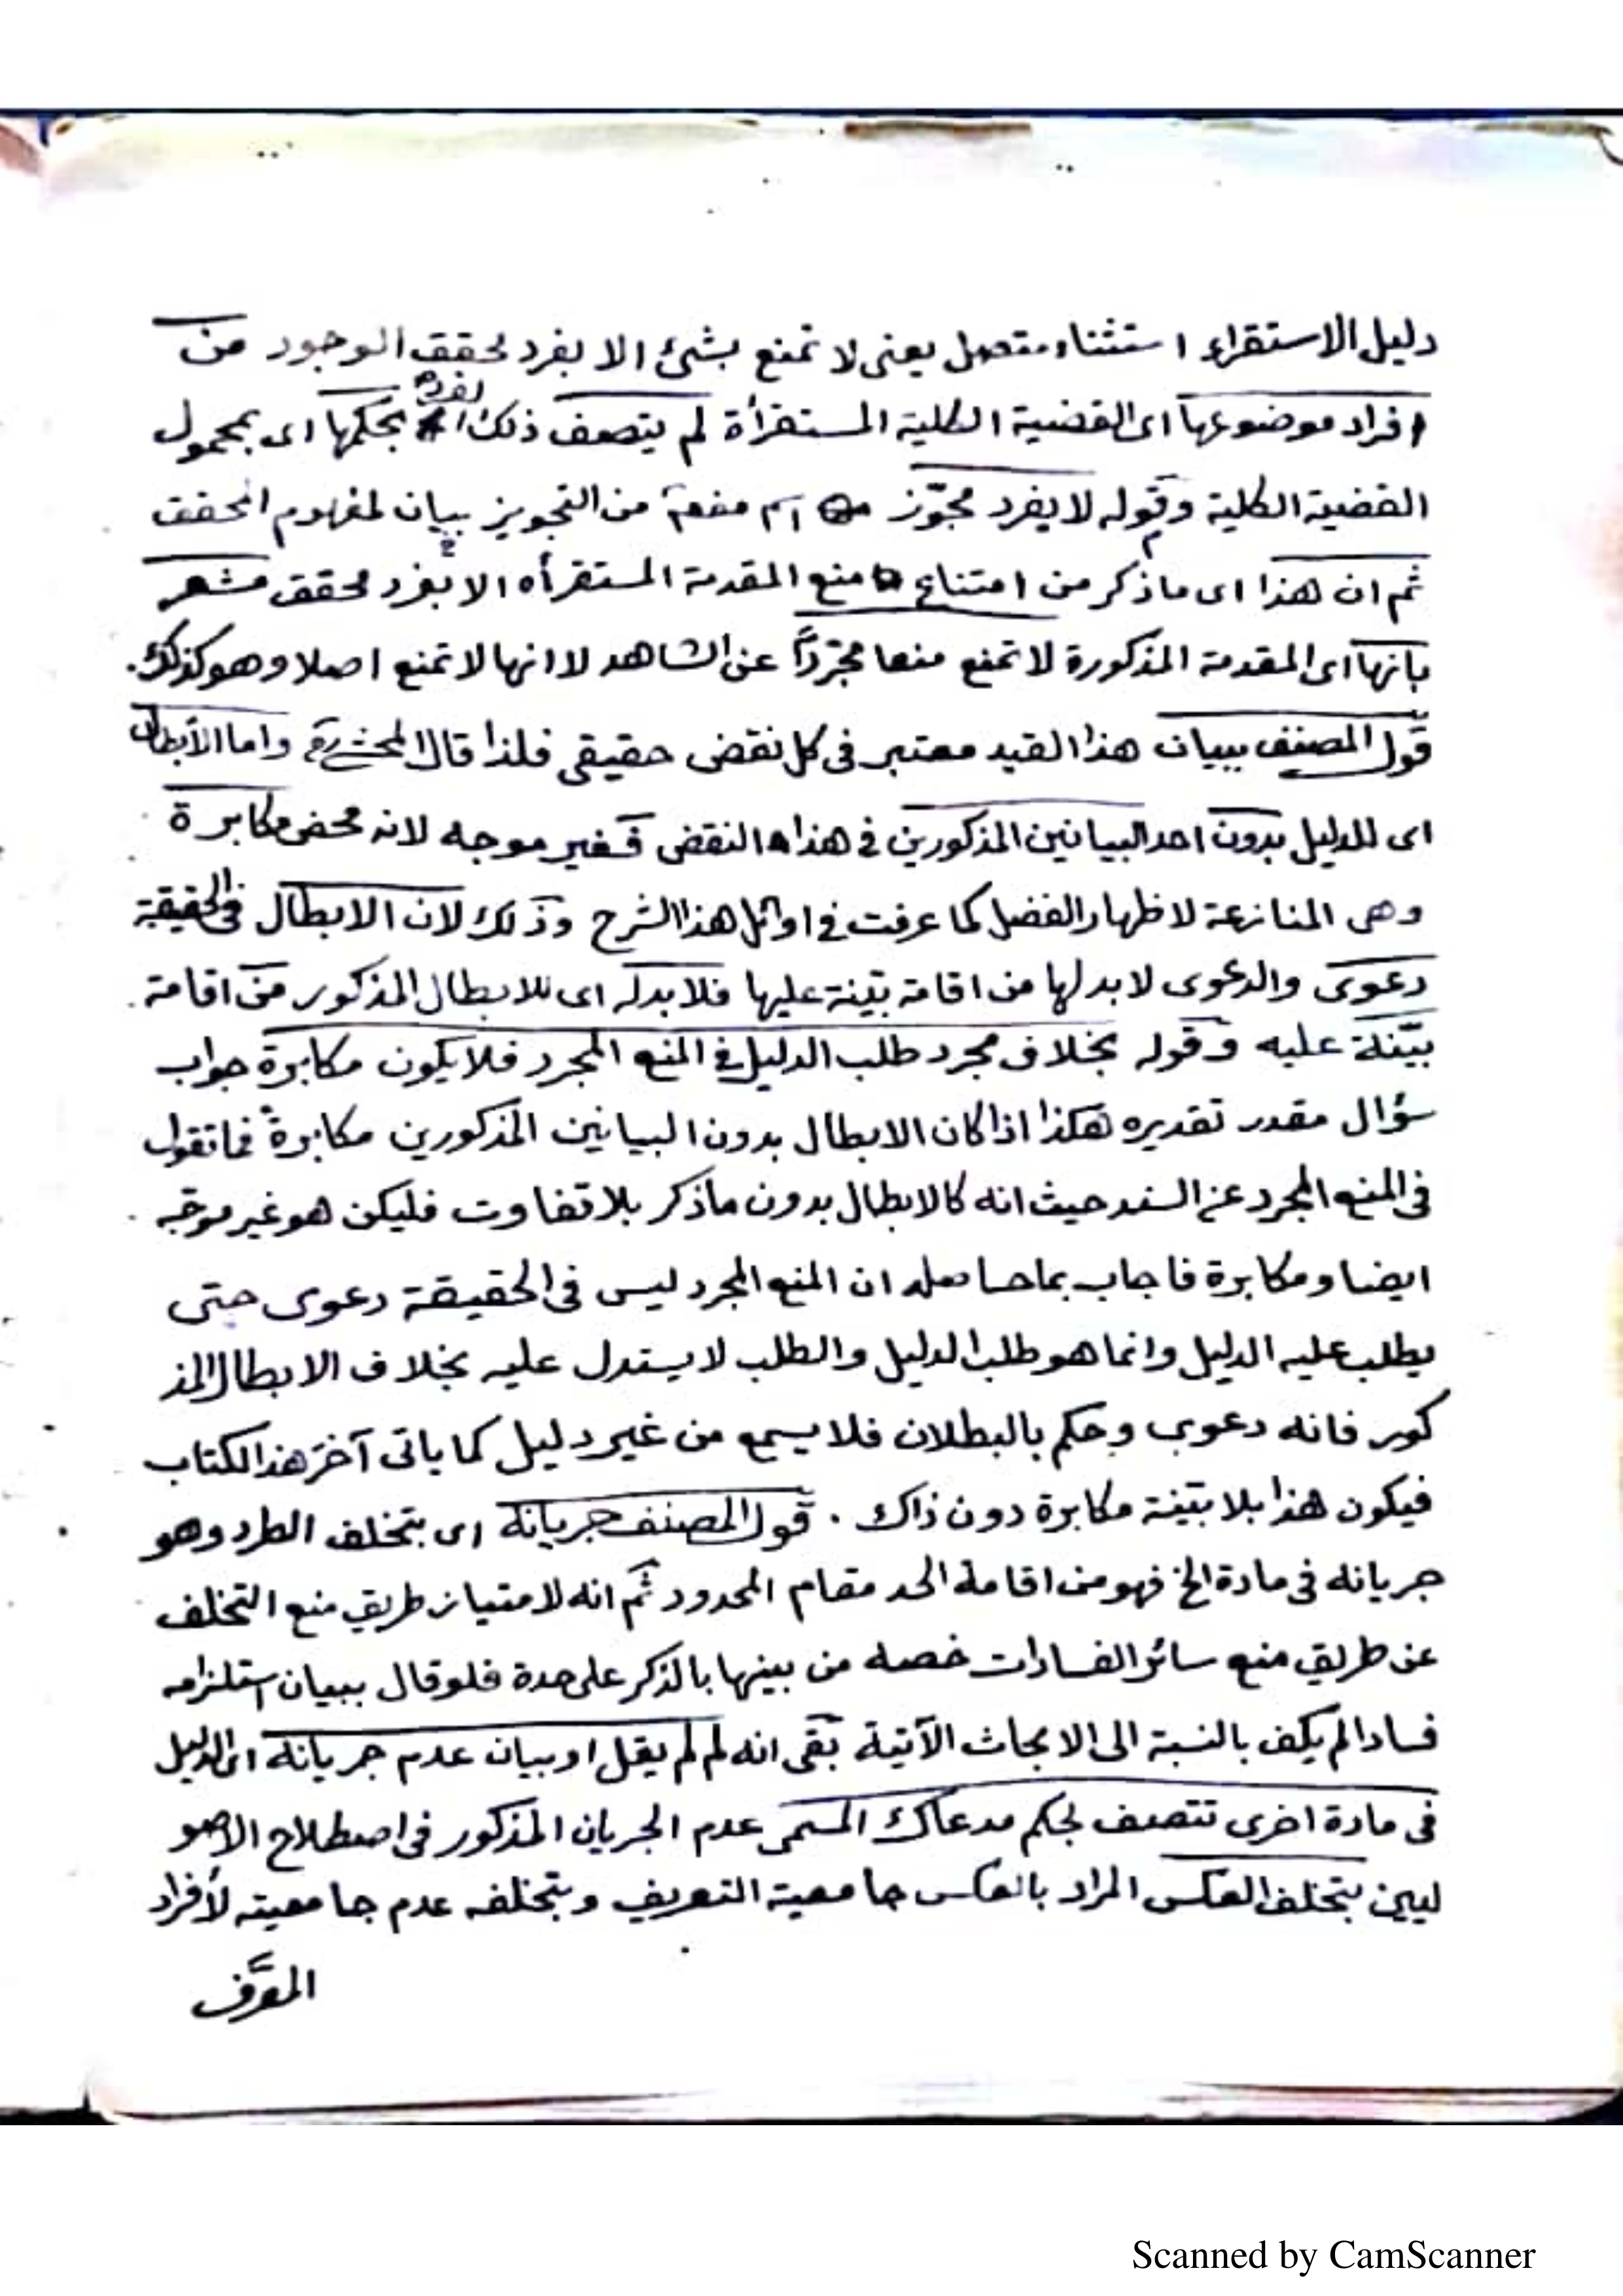 دليل الاستقراء استثناء متصل يعنى لا تمنع بشئ الا بفرد محقق الوجود من
افراد موضوعها اى القضية الكلية المستقرأة لم يتصف ذلك الفرد بحكمها اى بمحمول
القضية الكلية وقوله لا بفرد مجوّز اسم مفعول من التجويز بيان لمفهوم المحقق
ثم ان هذا اى ما ذكر من امتناع منع المقدمة المستقرأه الا بفرد محقق مشعر
بانها اى المقدمة المذكورة لا تمنع منعا مجرّداً عن الشاهد لا انها لا تمنع اصلا وهو كذلك.
قول المصنف ببيان هذا القيد معتبر فى كل نقض حقيقى فلذا قال المحشى واما الأبطال
اى للدليل بدون احد البيانين المذكورين فى هذا النقض فغير موجه لانه محض مكابرة
وهى المنازعة لاظهار الفضل كما عرفت فى اوائل هذا الشرح وذلك لان الابطال فى الحقيقة
دعوى والدعوى لا بد لها من اقامة بيّنة عليها فلا بد له اى للابطال المذكور من اقامة
بيّنة عليه وقوله بخلاف مجرد طلب الدليل فى المنع المجرد فلا يكون مكابرة جواب
سؤال مقدر تقديره هكذا اذا كان الابطال بدون البيانين المذكورين مكابرة فما تقول
فى المنع المجرد عن السند حيث انه كالابطال بدون ما ذكر بلا تفاوت فليكن هو غير موجّه
ايضا ومكابرة فاجاب بما حاصله ان المنع المجرد ليس فى الحقيقة دعوى حتى
يطلب عليه الدليل وانما هو طلب الدليل والطلب لا يستدل عليه بخلاف الابطال المذ
كور فانه دعوى وحكم بالبطلان فلا يسمع من غير دليل كما ياتى آخر هذا الكتاب
فيكون هذا بلا بيّنة مكابرة دون ذاك . قول المصنف جريانه اى بتخلف الطرد وهو
جريانه فى مادة الخ فهو من اقامة الحد مقام المحدود ثم انه لامتياز طريق منع التخلف
عن طريق منع سائر الفسادات خصه من بينها بالذكر على حدة فلو قال ببيان استلزامه
فسادا لم يكف بالنسبة الى الابحاث الآتية بقى انه لم لم يقل او بيان عدم جريانه اى الدليل
فى مادة اخرى تتصف بحكم مدعاك المسمى عدم الجريان المذكور فى اصطلاح الاصو
ليين بتخلف العكس المراد بالعكس جامعية التعريف وبتخلفه عدم جامعيته لأفراد
المعرَّف
Scanned by CamScanner